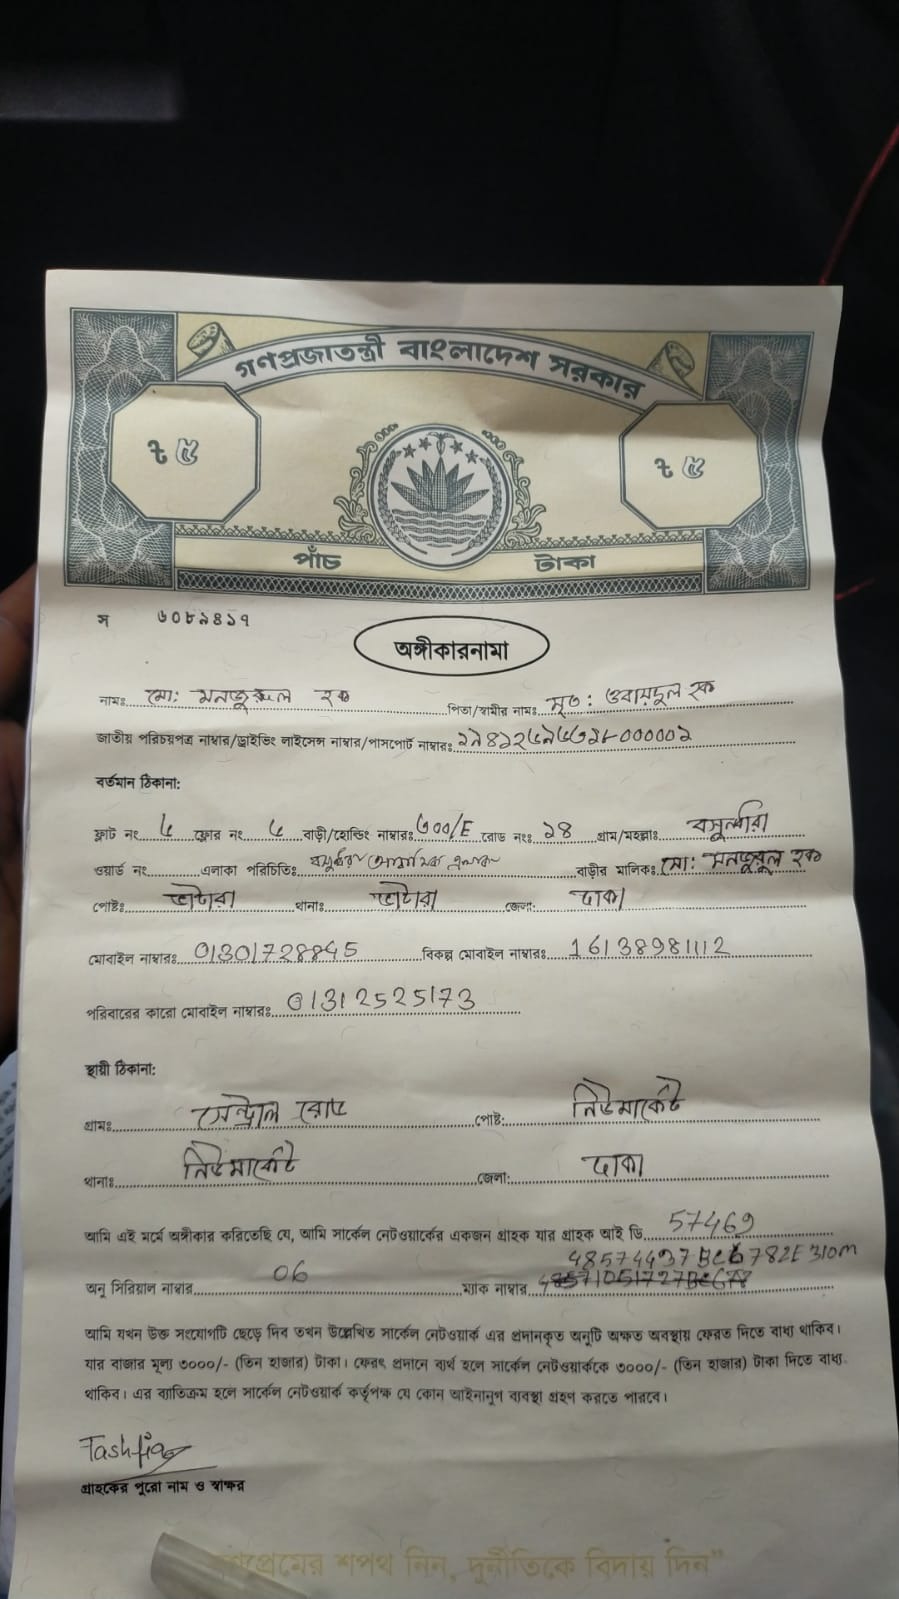 গণপ্রজাতন্ত্রী বাংলাদেশ সরকার
৳ ৫ ৳ ৫
পাঁচ টাকা
স ৬০৮৯৪১৭
অঙ্গীকারনামা
নামঃ মো: মনজুরুল হক পিতা/স্বামীর নামঃ মৃত: ওবায়দুল হক
জাতীয় পরিচয়পত্র নাম্বার/ড্রাইভিং লাইসেন্স নাম্বার/পাসপোর্ট নাম্বারঃ
বর্তমান ঠিকানা:
ফ্লাট নং ৫ ফ্লোর নং ৫ বাড়ী/হোল্ডিং নাম্বারঃ ৩০০/E রোড নংঃ ১৪ গ্রাম/মহল্লাঃ বসুন্ধরা
ওয়ার্ড নং এলাকা পরিচিতিঃ বসুন্ধরা আবাসিক এলাকা বাড়ীর মালিকঃ মো: মনজুরুল হক
পোষ্টঃ ভাটারা থানাঃ ভাটারা জেলা: ঢাকা
মোবাইল নাম্বারঃ 01301728845 বিকল্প মোবাইল নাম্বারঃ 16138981112
পরিবারের কারো মোবাইল নাম্বারঃ 01312525173
স্থায়ী ঠিকানা:
গ্রামঃ সেন্ট্রাল রোড পোষ্ট: নিউমার্কেট
থানাঃ নিউমার্কেট জেলা: ঢাকা
আমি এই মর্মে অঙ্গীকার করিতেছি যে, আমি সার্কেল নেটওয়ার্কের একজন গ্রাহক যার গ্রাহক আই ডি 57469
অনু সিরিয়াল নাম্বার 06 ম্যাক নাম্বার
আমি যখন উক্ত সংযোগটি ছেড়ে দিব তখন উল্লেখিত সার্কেল নেটওয়ার্ক এর প্রদানকৃত অনুটি অক্ষত অবস্থায় ফেরত দিতে বাধ্য থাকিব।
যার বাজার মূল্য ৩০০০/- (তিন হাজার) টাকা। ফেরৎ প্রদানে ব্যর্থ হলে সার্কেল নেটওয়ার্ককে ৩০০০/- (তিন হাজার) টাকা দিতে বাধ্য
থাকিব। এর ব্যতিক্রম হলে সার্কেল নেটওয়ার্ক কর্তৃপক্ষ যে কোন আইনানুগ ব্যবস্থা গ্রহণ করতে পারবে।
Tashfia
গ্রাহকের পুরো নাম ও স্বাক্ষর
শপথ নিন, দুর্নীতিকে বিদায় দিন"